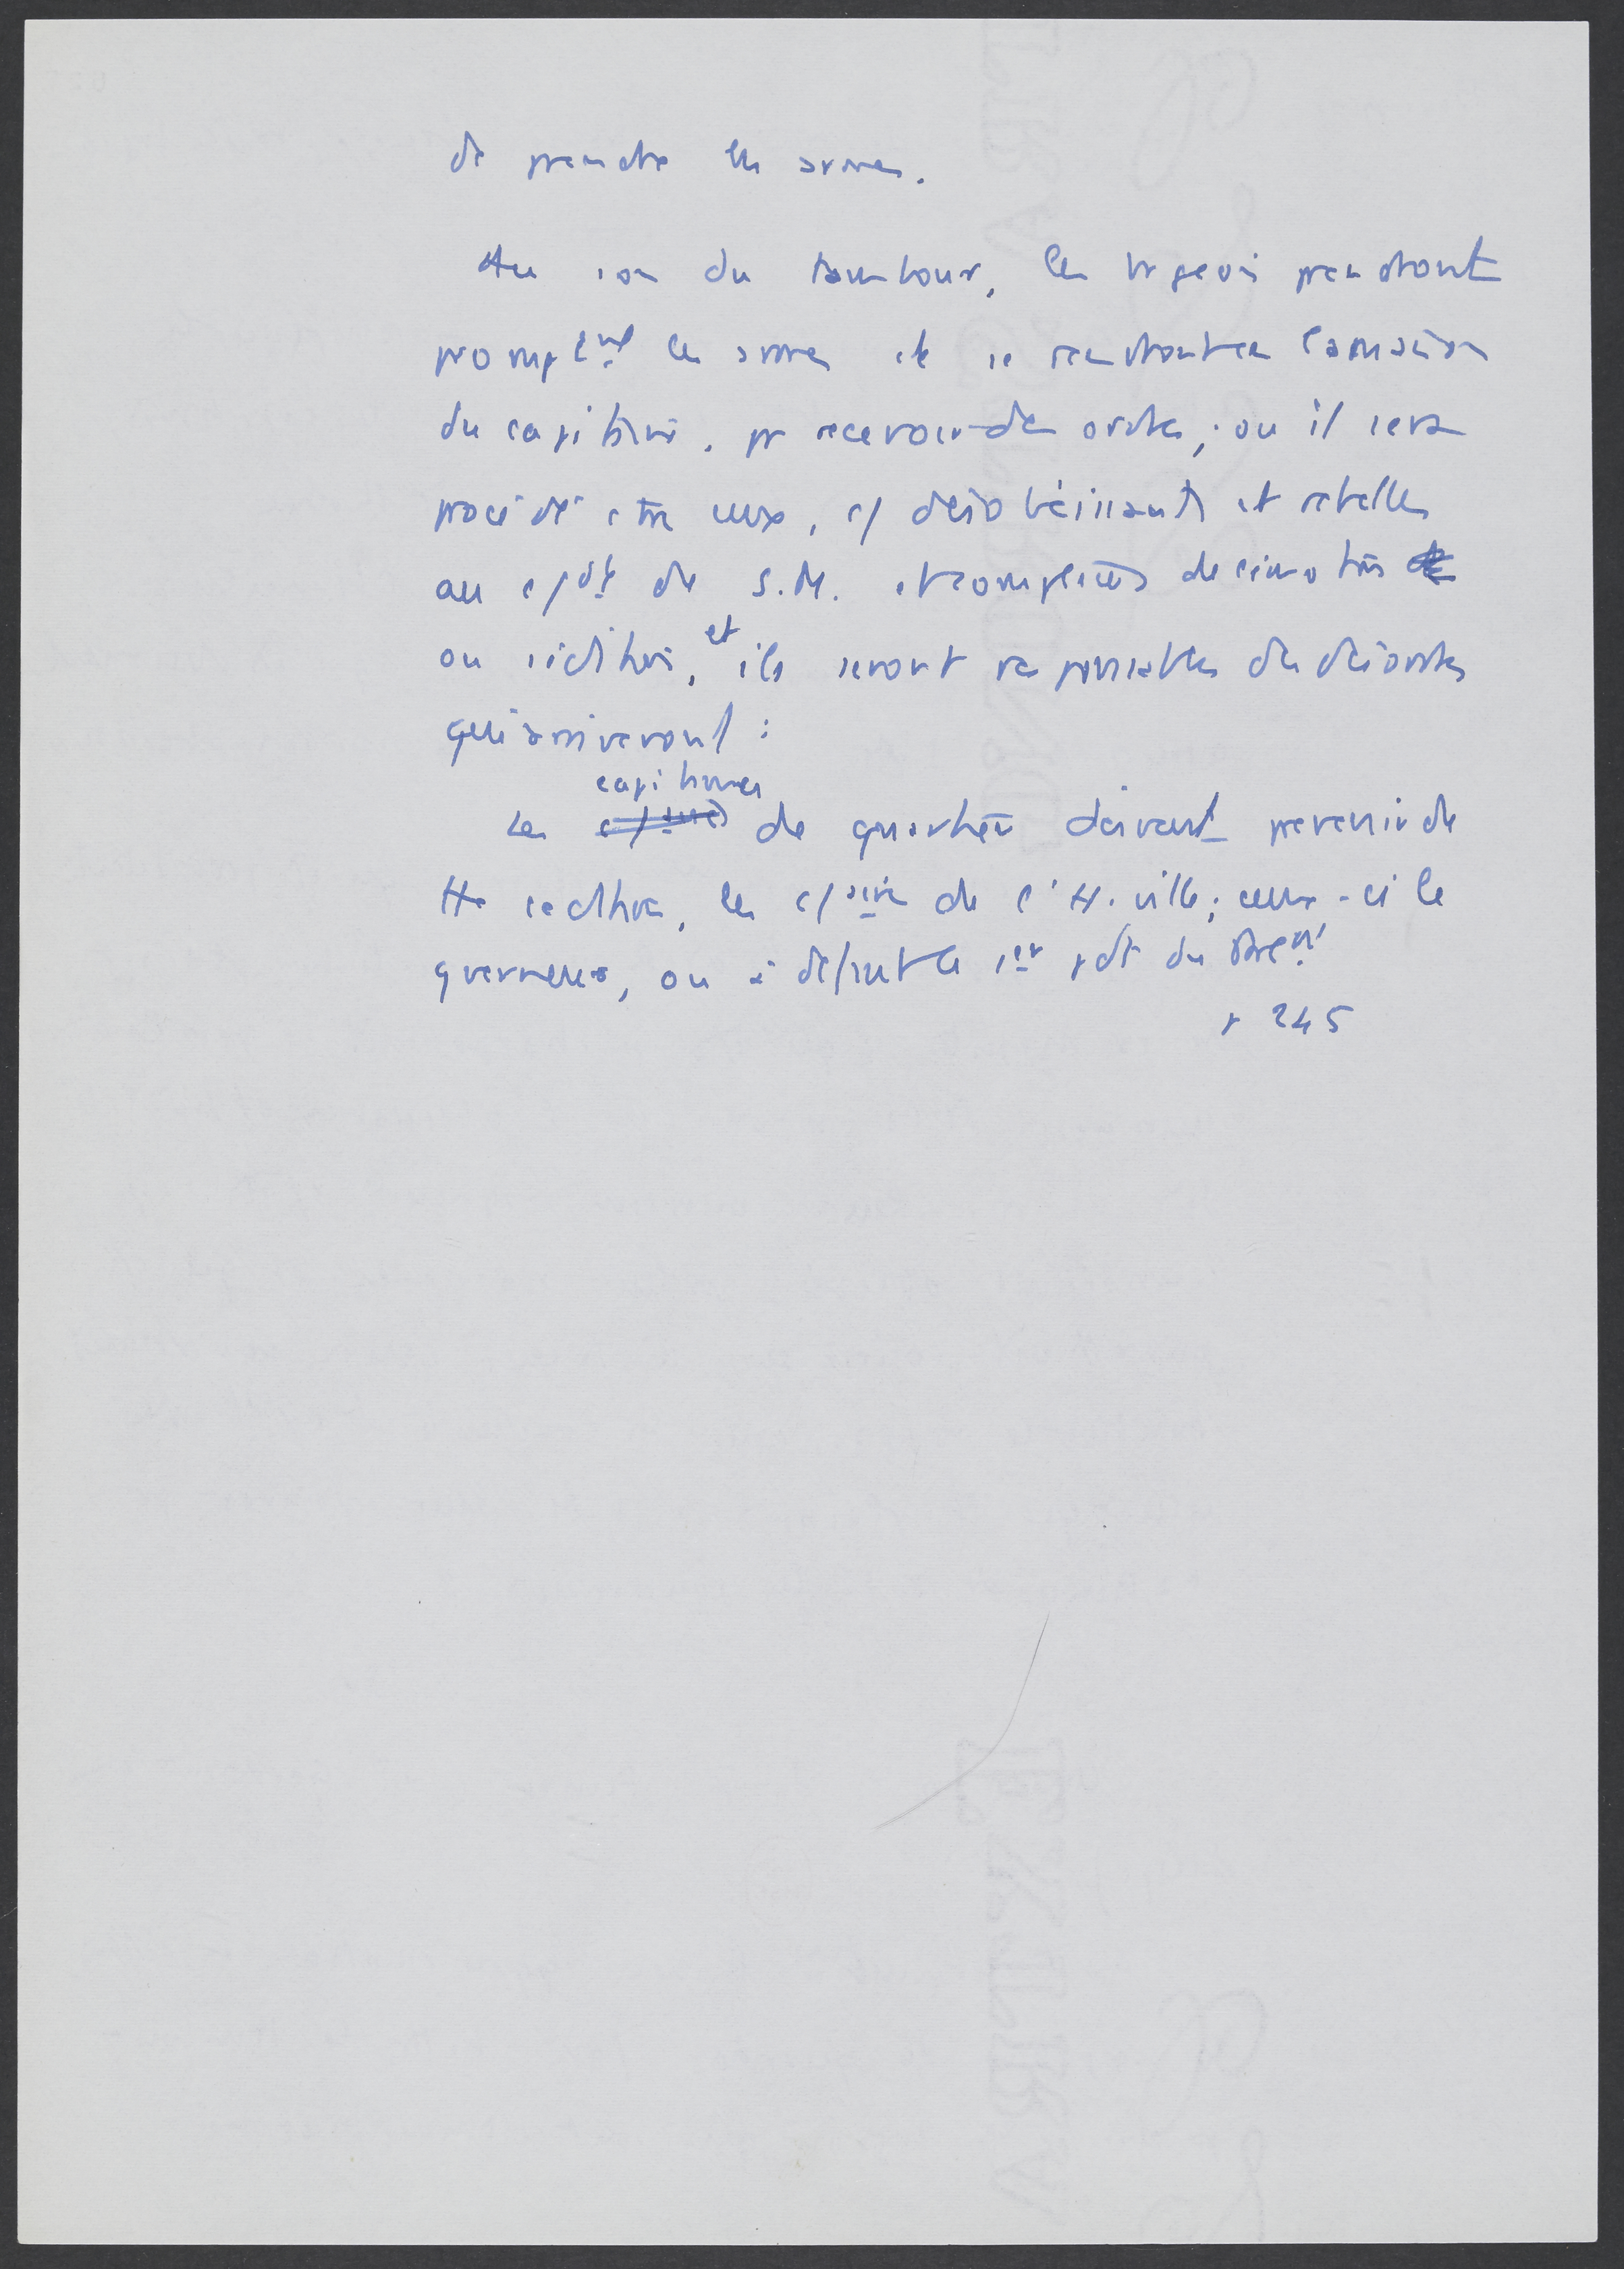 de prendre les armes.
Au son du tambour, les bgeois prendront
prompt^mt les armes et se rendront en la maison
du capitaine, pr recevoir des ordres; ou il sera
procédé ctre eux, c/ désobéissants et rebelles
au c/dt de S.M. et complices de émotions
ou sédition, et ils seront responsables des désordres
qui arriveront :
Les capitaines de quartier doivent prevenir de
tte sedition, les de l'H. ville; ceux-ci le
gverneur, ou à défaut le 1er pdt du
p 245